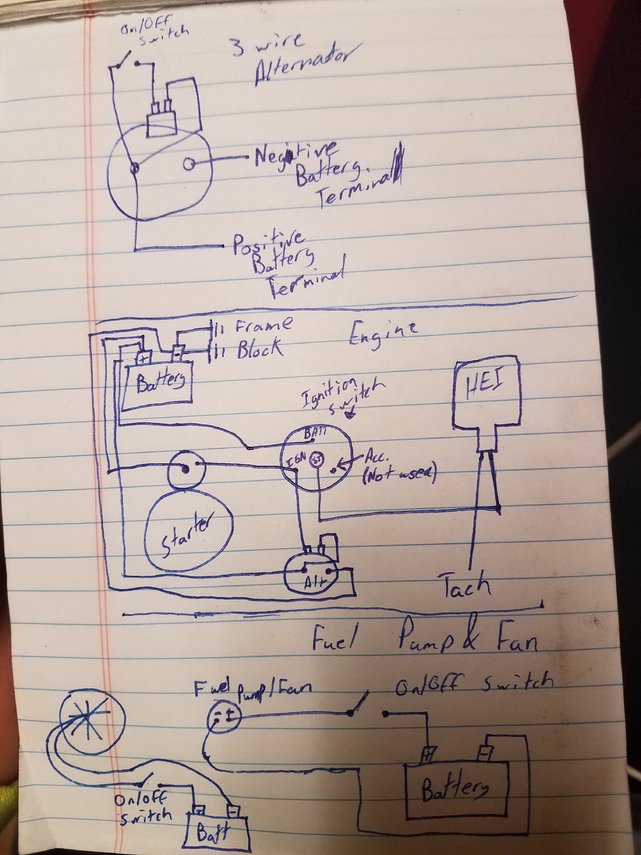 On/Off
Switch
3 wire
Alternator
Negative
Battery
Terminal
Positive
Battery
Terminal
Frame
Block
+
-
Battery
Engine
Ignition
Switch
HEI
BATT
IGN
ST
Acc.
(Not used)
Starter
Alt
Tach
Fuel Pump & Fan
Fuel Pump/Fan
On/Off Switch
- +
+
-
Battery
On/Off
Switch
+
-
Batt